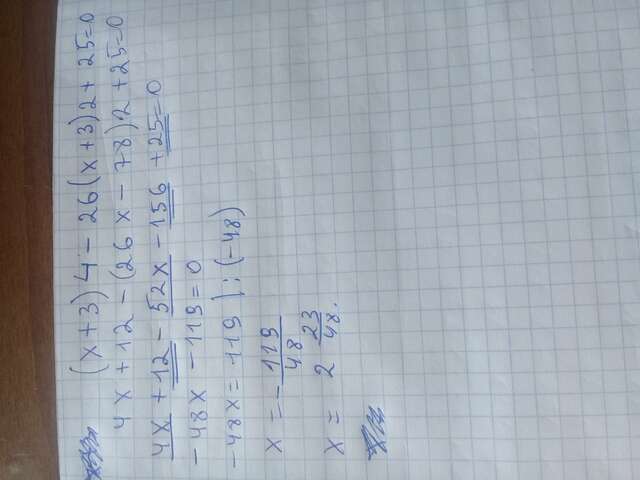 (x+3)4-26(x+3)2+25=0
4x+12-(26x-78)2+25=0
4x+12-52x-156+25=0
-48x-119=0
-48x=119 | : (-48)
x=-119/48
x= 2 23/48.